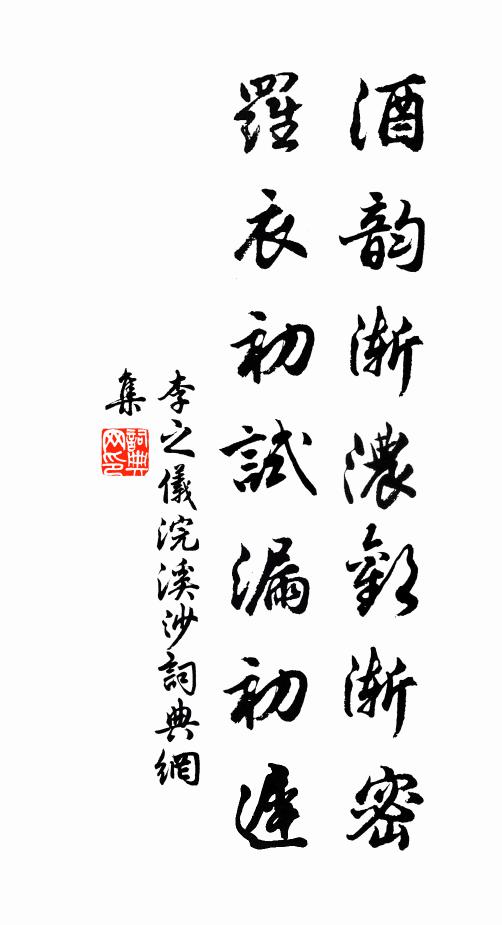 酒韵渐濃歡渐密
羅衣初試漏初遲
李之儀浣溪沙詞典網
集
詞典网印